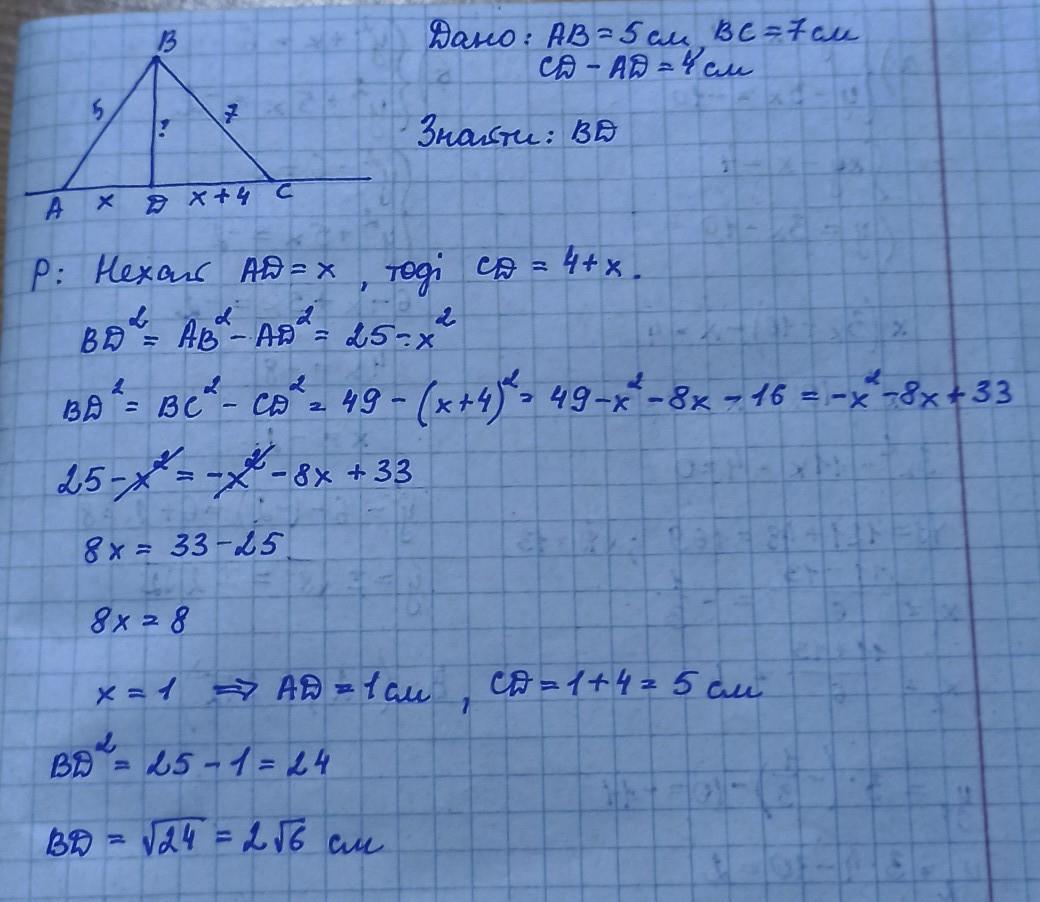 B
Дано: AB = 5 см, BC = 7 см
CD - AD = 4 см
5
?
7
Знайти: BD
A x D x+4 C
Р: Нехай AD = x, тоді CD = 4+x.
BD² = AB² - AD² = 25 - x²
BD² = BC² - CD² = 49 - (x+4)² = 49 - x² - 8x - 16 = -x² - 8x + 33
25 - x² = -x² - 8x + 33
8x = 33 - 25
8x = 8
x = 1 ⇒ AD = 1 см, CD = 1+4 = 5 см
BD² = 25 - 1 = 24
BD = √24 = 2√6 см